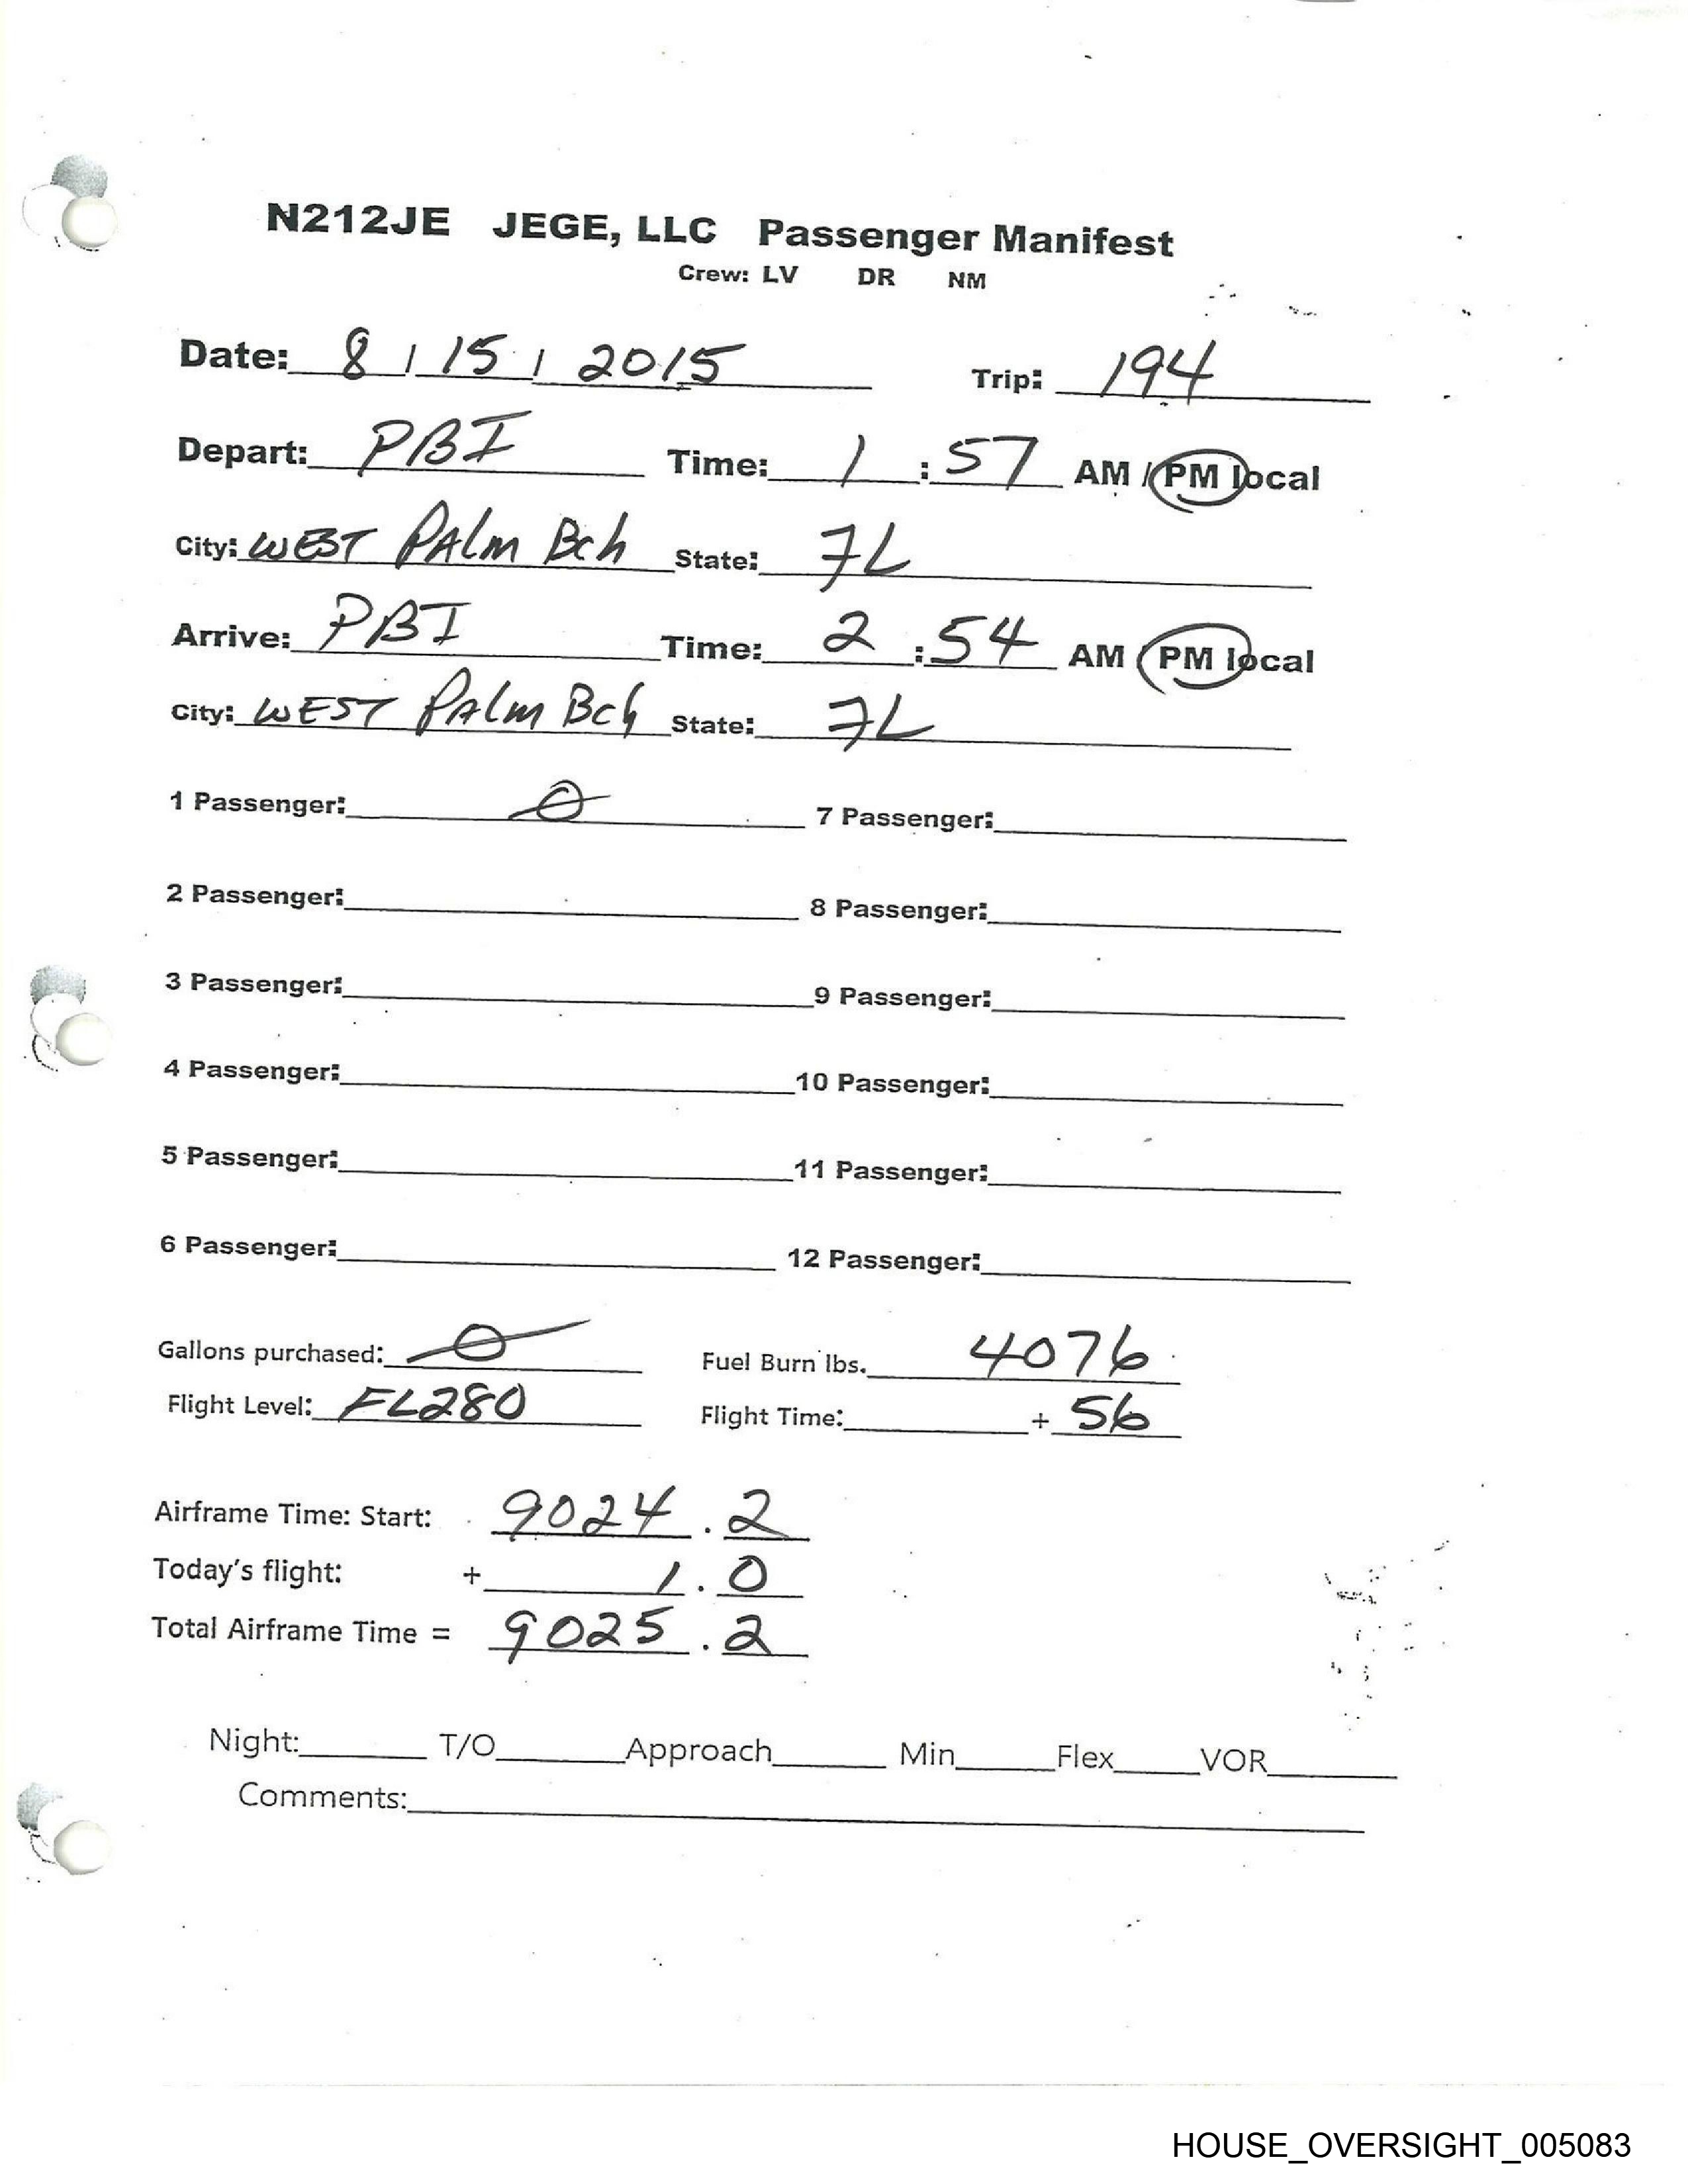 N212JE JEGE, LLC Passenger Manifest
Crew: LV DR NM
Date: 8 / 15 / 2015 Trip: 194
Depart: PBI Time: 1 : 57 AM / PM local
City: WEST PALM Bch State: FL
Arrive: PBI Time: 2 : 54 AM / PM local
City: WEST PALM Bch State: FL
1 Passenger: 0 7 Passenger:
2 Passenger: 8 Passenger:
3 Passenger: 9 Passenger:
4 Passenger: 10 Passenger:
5 Passenger: 11 Passenger:
6 Passenger: 12 Passenger:
Gallons purchased: 0 Fuel Burn lbs. 4076
Flight Level: FL280 Flight Time: + 56
Airframe Time: Start: 9024 . 2
Today's flight: + 1 . 0
Total Airframe Time = 9025 . 2
Night: T/O Approach Min Flex VOR
Comments:
HOUSE_OVERSIGHT_005083